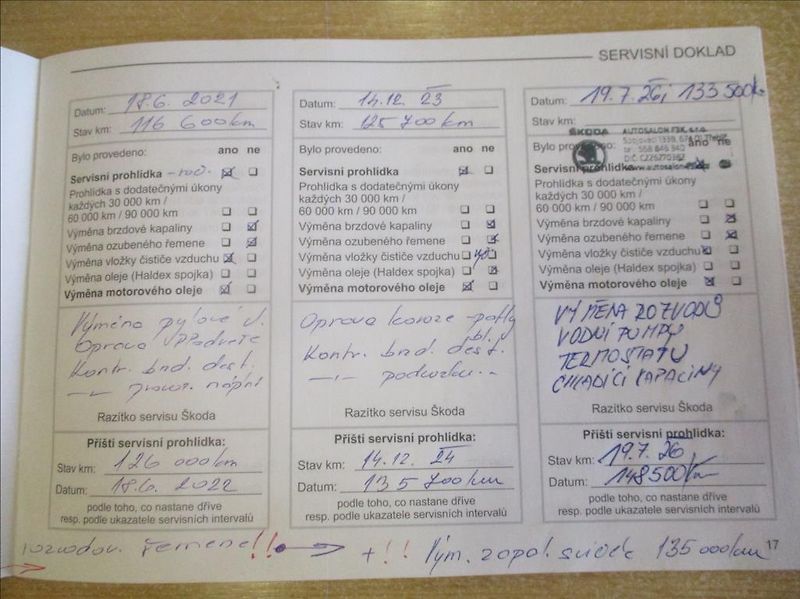 SERVISNÍ DOKLAD
Datum: 18.6. 2021
Stav km: 116 600 km
Bylo provedeno: ano ne
Servisní prohlídka
Prohlídka s dodatečnými úkony
každých 30 000 km /
60 000 km / 90 000 km
Výměna brzdové kapaliny
Výměna ozubeného řemene
Výměna vložky čističe vzduchu
Výměna oleje (Haldex spojka)
Výměna motorového oleje
Výměna pylové
Oprava
Kontr. brzd. dest.
Razítko servisu Škoda
Příští servisní prohlídka:
Stav km: 126 000 km
Datum: 18.6. 2022
podle toho, co nastane dříve
resp. podle ukazatele servisních intervalů
Datum: 14.12. 23
Stav km: 125 700 km
Bylo provedeno: ano ne
Servisní prohlídka
Prohlídka s dodatečnými úkony
každých 30 000 km /
60 000 km / 90 000 km
Výměna brzdové kapaliny
Výměna ozubeného řemene
Výměna vložky čističe vzduchu
Výměna oleje (Haldex spojka)
Výměna motorového oleje
Oprava koroze
Kontr. brzd. dest.
podvozku
Razítko servisu Škoda
Příští servisní prohlídka:
Stav km: 14.12. 24
Datum: 135 700 km
podle toho, co nastane dříve
resp. podle ukazatele servisních intervalů
Datum: 19.7. 133 500
Stav km:
ŠKODA AUTOSALON FSK, s.r.o.
Bylo provedeno: ano ne
Servisní prohlídka
Prohlídka s dodatečnými úkony
každých 30 000 km /
60 000 km / 90 000 km
Výměna brzdové kapaliny
Výměna ozubeného řemene
Výměna vložky čističe vzduchu
Výměna oleje (Haldex spojka)
Výměna motorového oleje
VÝMĚNA ROZVODŮ
VODNÍ PUMPY
TERMOSTATU
CHLADÍCÍ KAPALINY
Razítko servisu Škoda
Příští servisní prohlídka:
Stav km: 19.7. 26
Datum: 148 500 km
podle toho, co nastane dříve
resp. podle ukazatele servisních intervalů
rozvodov. řemene!! → + !! Vým. zapal. svíček 135 000 km
17